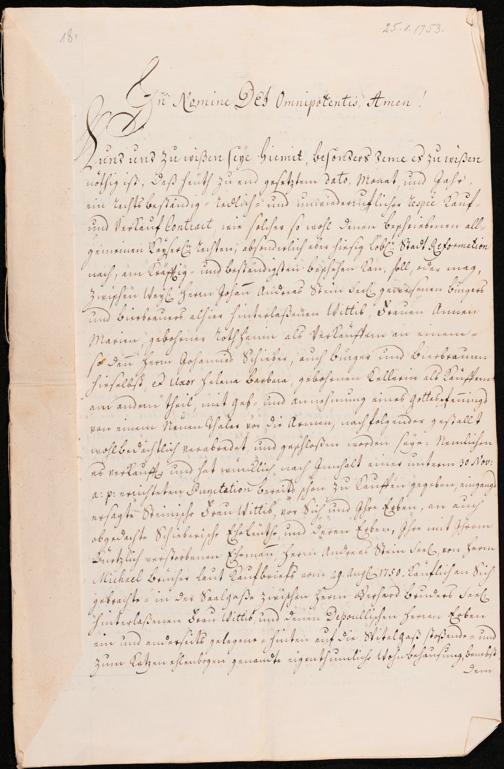 18.
25.1.1753.
In Nomine Dei Omnipotentis, Amen!
Kund und zu wißen seye hiemit, besonders deme es zu wißen
nöthig ist, daß heüth zu end gesetztem dato, Monat, und Jahr,
ein rechts beständig- redlich- und unwiederrufflicher Kauf-
und Verkauf Contract, wie solcher so wohl denen beschriebenen all-
gemeinen Kayserl. Rechten, absonderlich aber hiesig Löbl. Stadt Reformation
nach, am kräfftig- und beständigsten beschehen kan, soll, oder mag,
zwischen Weyl. Herrn Johann Andreas Stein Seel. gewesenen Burgers
und Bierbrauers alhier hinterlaßenen Wittib, Frauen Annen
Marien, gebohrner als Verkäufferin an einem-
so dann Herrn Johannes Schieber, auch Burger und Bierbrauern
hieselbst, et Uxor Helena Barbara, gebohrnen Kellerin als Käuffern
am andern theil, mit geb- und annehmung eines gottes pfennings
von einem Neuen Thaler vor die Armen, nachfolgender gestallt
wohlbedächtlich verabredet und geschloßen worden seye: Nemlichen
es verkaufft und hat würcklich, nach Innhalt einer unterm 30 Nov:
a: p: errichteten Punctation bereits schon zu kauffen gegeben, eingangs
ersagte Steinische Frau Wittib, vor Sich und Ihre Erben, an auch
obgedachte Schieberische Eheleuthe und deren Erben, Ihre mit Ihrem
kürtzlich verstorbenen Eheman, Herrn Andreas Stein Seel. von Herrn
Michael laut Kaufbriefs vom 29. Aug. 1750. käufflichen Sich
gebrachte- in der Saalgaße zwischen Herrn Gerhard Seel.
hinterlaßenen Frau Wittib, und denen Herren Erben
ein und anderseits gelegene- hinten auf die stoßende- und
zum Katzen elenbogen genandte eigenthumliche Wohnbehausung, benebst
dem